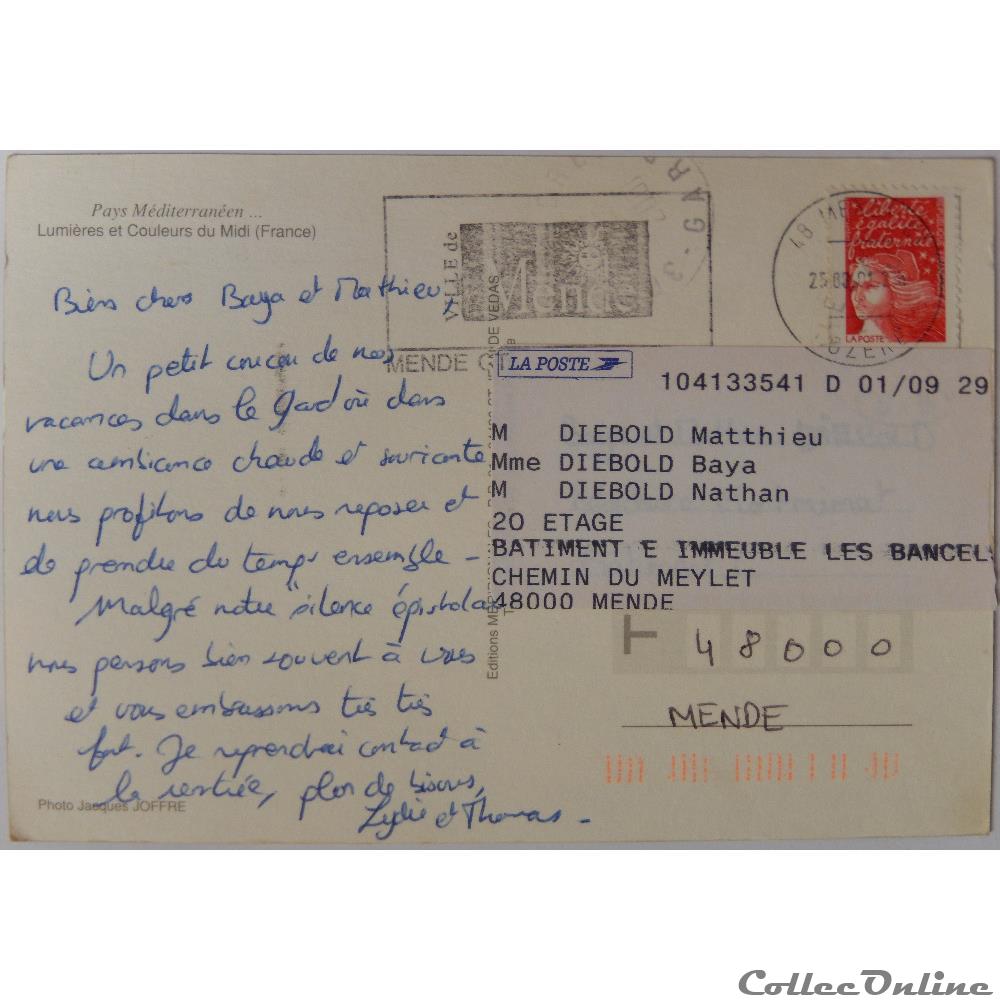 Pays Méditerranéen ...
Lumières et Couleurs du Midi (France)
Biens chers Baya et Matthieu,
Un petit coucou de nos
vacances dans le Gard où dans
une ambiance chaude et souriante
nous profitons de nous reposer et
de prendre du temps ensemble -
Malgré notre "silence épistola
nous pensons bien souvent à vous
et vous embrassons très très
fort. Je reprendrai contact à
la rentrée, plein de bisous,
Lydie et Thomas -
Photo Jacques JOFFRE
VILLE de
Mende
MENDE CT
GAR
48 MENDE
LOZERE
liberté
égalité
fraternité
LA POSTE
LA POSTE
104133541 D 01/09 29
M DIEBOLD Matthieu
Mme DIEBOLD Baya
M DIEBOLD Nathan
20 ETAGE
BATIMENT E IMMEUBLE LES BANCELS
CHEMIN DU MEYLET
48000 MENDE
48000
MENDE
Editions
DE VEDAS
CollecOnline